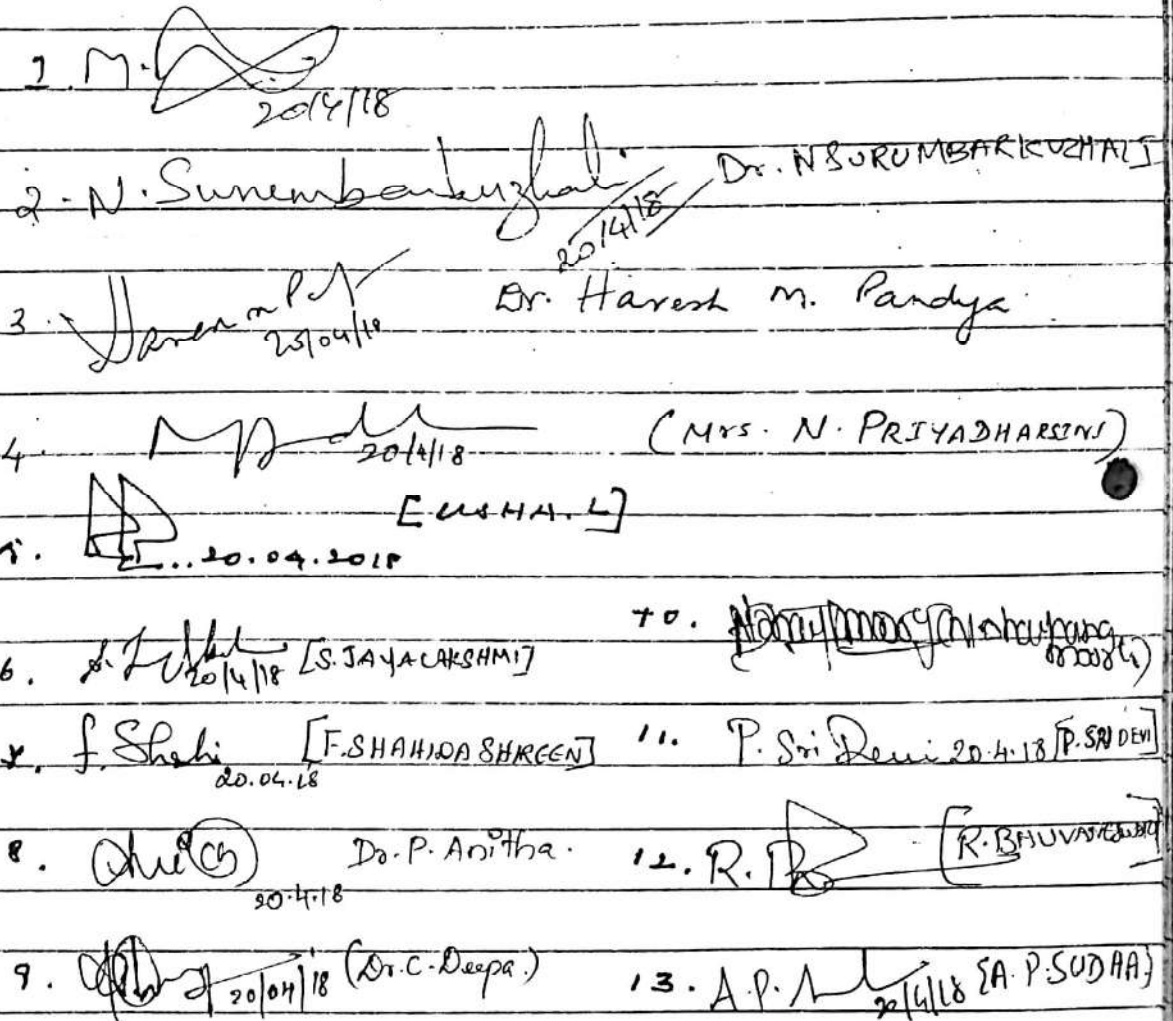 1. M. 20/4/18
2. N. Surumbarkuzhali 20/4/18 Dr. N SURUMBARKUZHALI
3. 20/04/18 Dr. Haresh M. Pandya
4. 20/4/18 (Mrs. N. PRIYADHARSINI)
20.04.2018 [USHA. L]
6. 20/4/18 [S. JAYALAKSHMI]
f. Shahi 20.04.18 [F. SHAHIDA SHIREEN]
8. 20.4.18 Dr. P. Anitha.
9. 20/04/18 (Dr. C. Deepa.)
10.
11. P. Sri Devi 20.4.18 [P. SRI DEVI]
12. R. [R. BHUVANESWARI]
13. A.P. 20/4/18 {A. P. SUDHA}